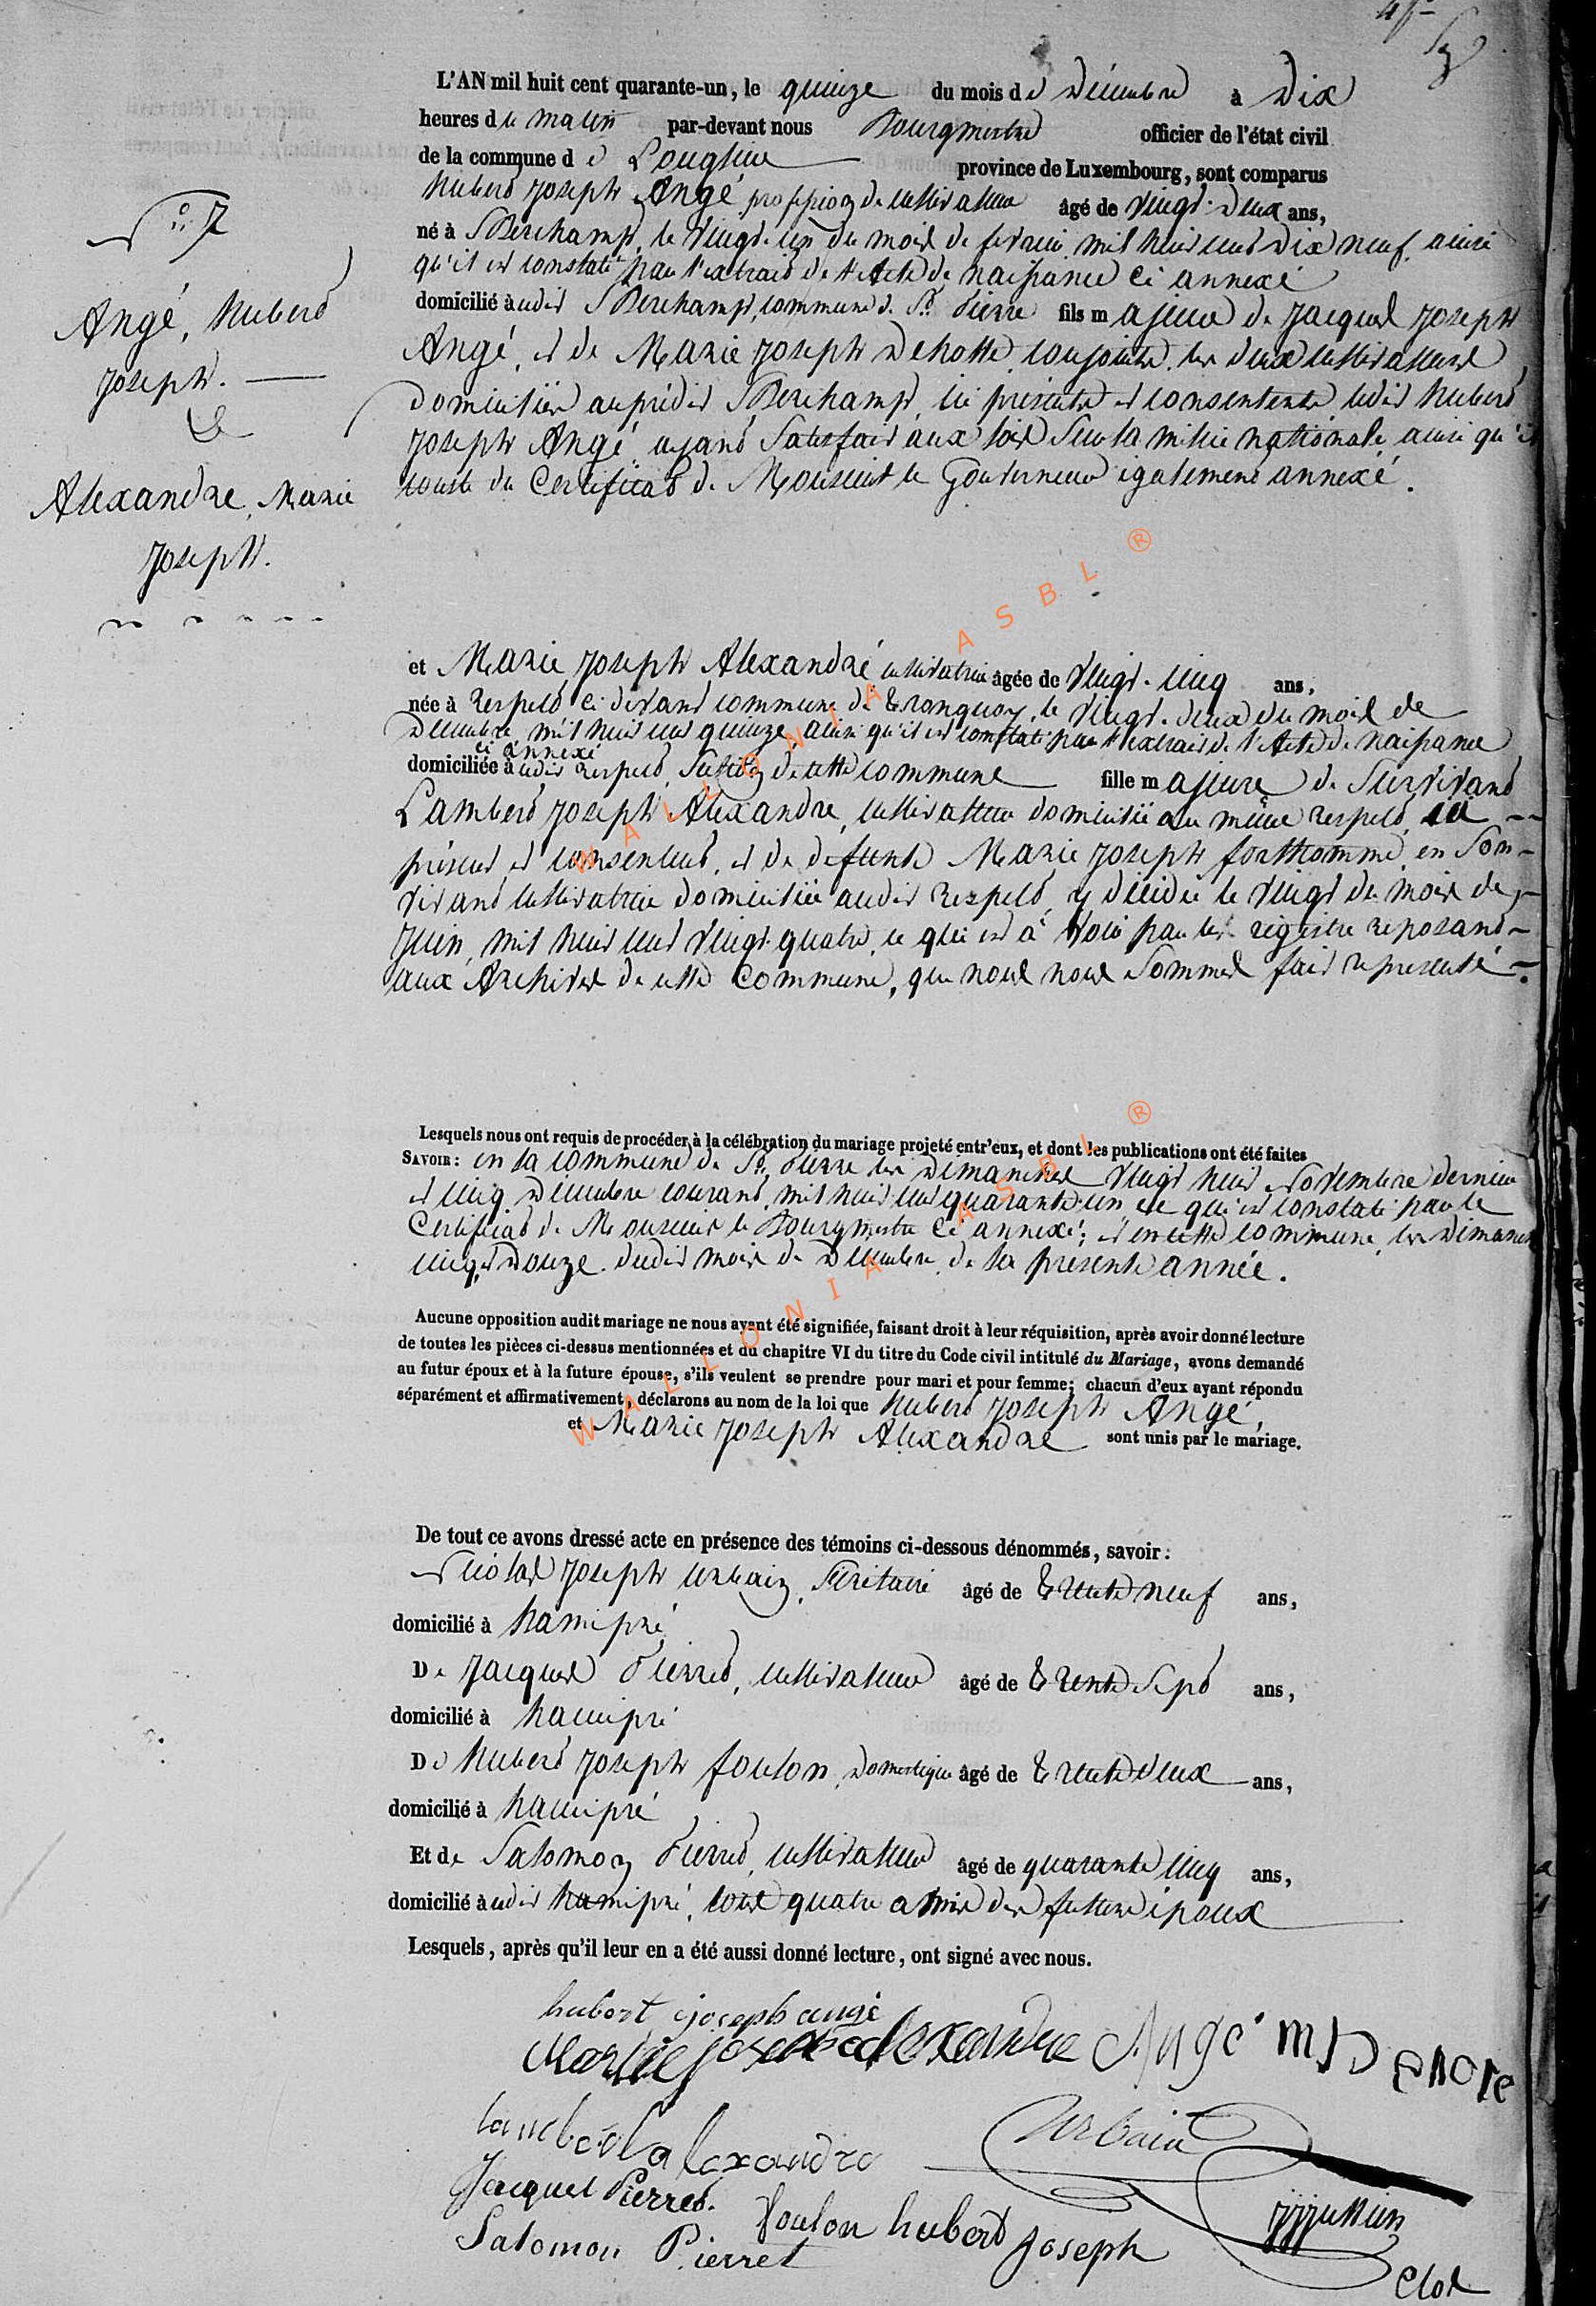 L'AN mil huit cent quarante-un, le quinze du mois de Décembre à Dix
heures du matin par-devant nous Bourgmestre officier de l'état civil
de la commune de Longlier province de Luxembourg, sont comparus
N° 7
Angé, hubert
joseph.
&
Alexandre, Marie
joseph.
hubert joseph Angé profession de cultivateur âgé de vingt-deux ans,
né à Berchamps, le vingt-un du mois de fevrier mil huit cent dix neuf, ainsi
qu'il est constaté par l'extrait de l'Acte de naissance ci annexé
domicilié audit Berchamps, commune de St. Pierre fils majeur de jacques joseph
Angé, et de Marie joseph Dehotte conjoints, les deux cultivateurs
domiciliés au prédit Berchamps, ici présents et consentents, ledit hubert
joseph Angé ayant satisfait aux lois sur la milice nationale ainsi qu'il
conste du Certificat de Monsieur le Gouverneur également annexé.
et Marie joseph Alexandre cultivatrice âgée de vingt-cinq ans,
née à Respelt ci devant commune de Tronquoy, le vingt-deux du mois de
Décembre, mil huit cent quinze, ainsi qu'il est constaté par l'extrait de l'Acte de naissance
ci annexé
domiciliée audit Respelt, section de cette commune fille majeure de survivant
Lambert joseph Alexandre, cultivateur domicilié au même Respelt, ici
présent et consentent, et de defunte Marie joseph forthomme, en son
vivant cultivatrice domiciliée audit Respelt, y décédée le vingt du mois de
juin, mil huit cent vingt-quatre, ce qui est à voir par les régistre reposant
aux Archives de cette commune, que nous nous sommes fait représenté.
Lesquels nous ont requis de procéder à la célébration du mariage projeté entr'eux, et dont les publications ont été faites
SAVOIR: en la commune de St. Pierre les Dimanches vingt huit Novembre dernier
et cinq Décembre courant, mil huit cent quarante-un ce qui est constaté par le
Certificat de Monsieur le Bourgmestre ci annexé; et en cette commune, les Dimanches
cinq et Douze dudit mois de Décembre, de la présente année.
Aucune opposition audit mariage ne nous ayant été signifiée, faisant droit à leur réquisition, après avoir donné lecture
de toutes les pièces ci-dessus mentionnées et du chapitre VI du titre du Code civil intitulé du Mariage, avons demandé
au futur époux et à la future épouse, s'ils veulent se prendre pour mari et pour femme; chacun d'eux ayant répondu
séparément et affirmativement, déclarons au nom de la loi que hubert joseph Angé,
et Marie joseph Alexandre sont unis par le mariage.
De tout ce avons dressé acte en présence des témoins ci-dessous dénommés, savoir:
Nicolas joseph urbain, Sécrétaire âgé de trente neuf ans,
domicilié à hamipré
De jacques Pierret, cultivateur âgé de trente sept ans,
domicilié à hamipré
De hubert joseph foulon, Domestique âgé de trente deux ans,
domicilié à hamipré
Et de Salomon Pierret, cultivateur âgé de quarante cinq ans,
domicilié audit hamipré, tous quatre amis des futurs époux
Lesquels, après qu'il leur en a été aussi donné lecture, ont signé avec nous.
hubert joseph angé
Marie joseph alexandre Angé mJ Dehote
lambert alexandre Urbain
Jacques Pierret.
foulon hubert joseph
Salomon Pierret
WALLONIA ASBL ®
WALLONIA ASBL ®